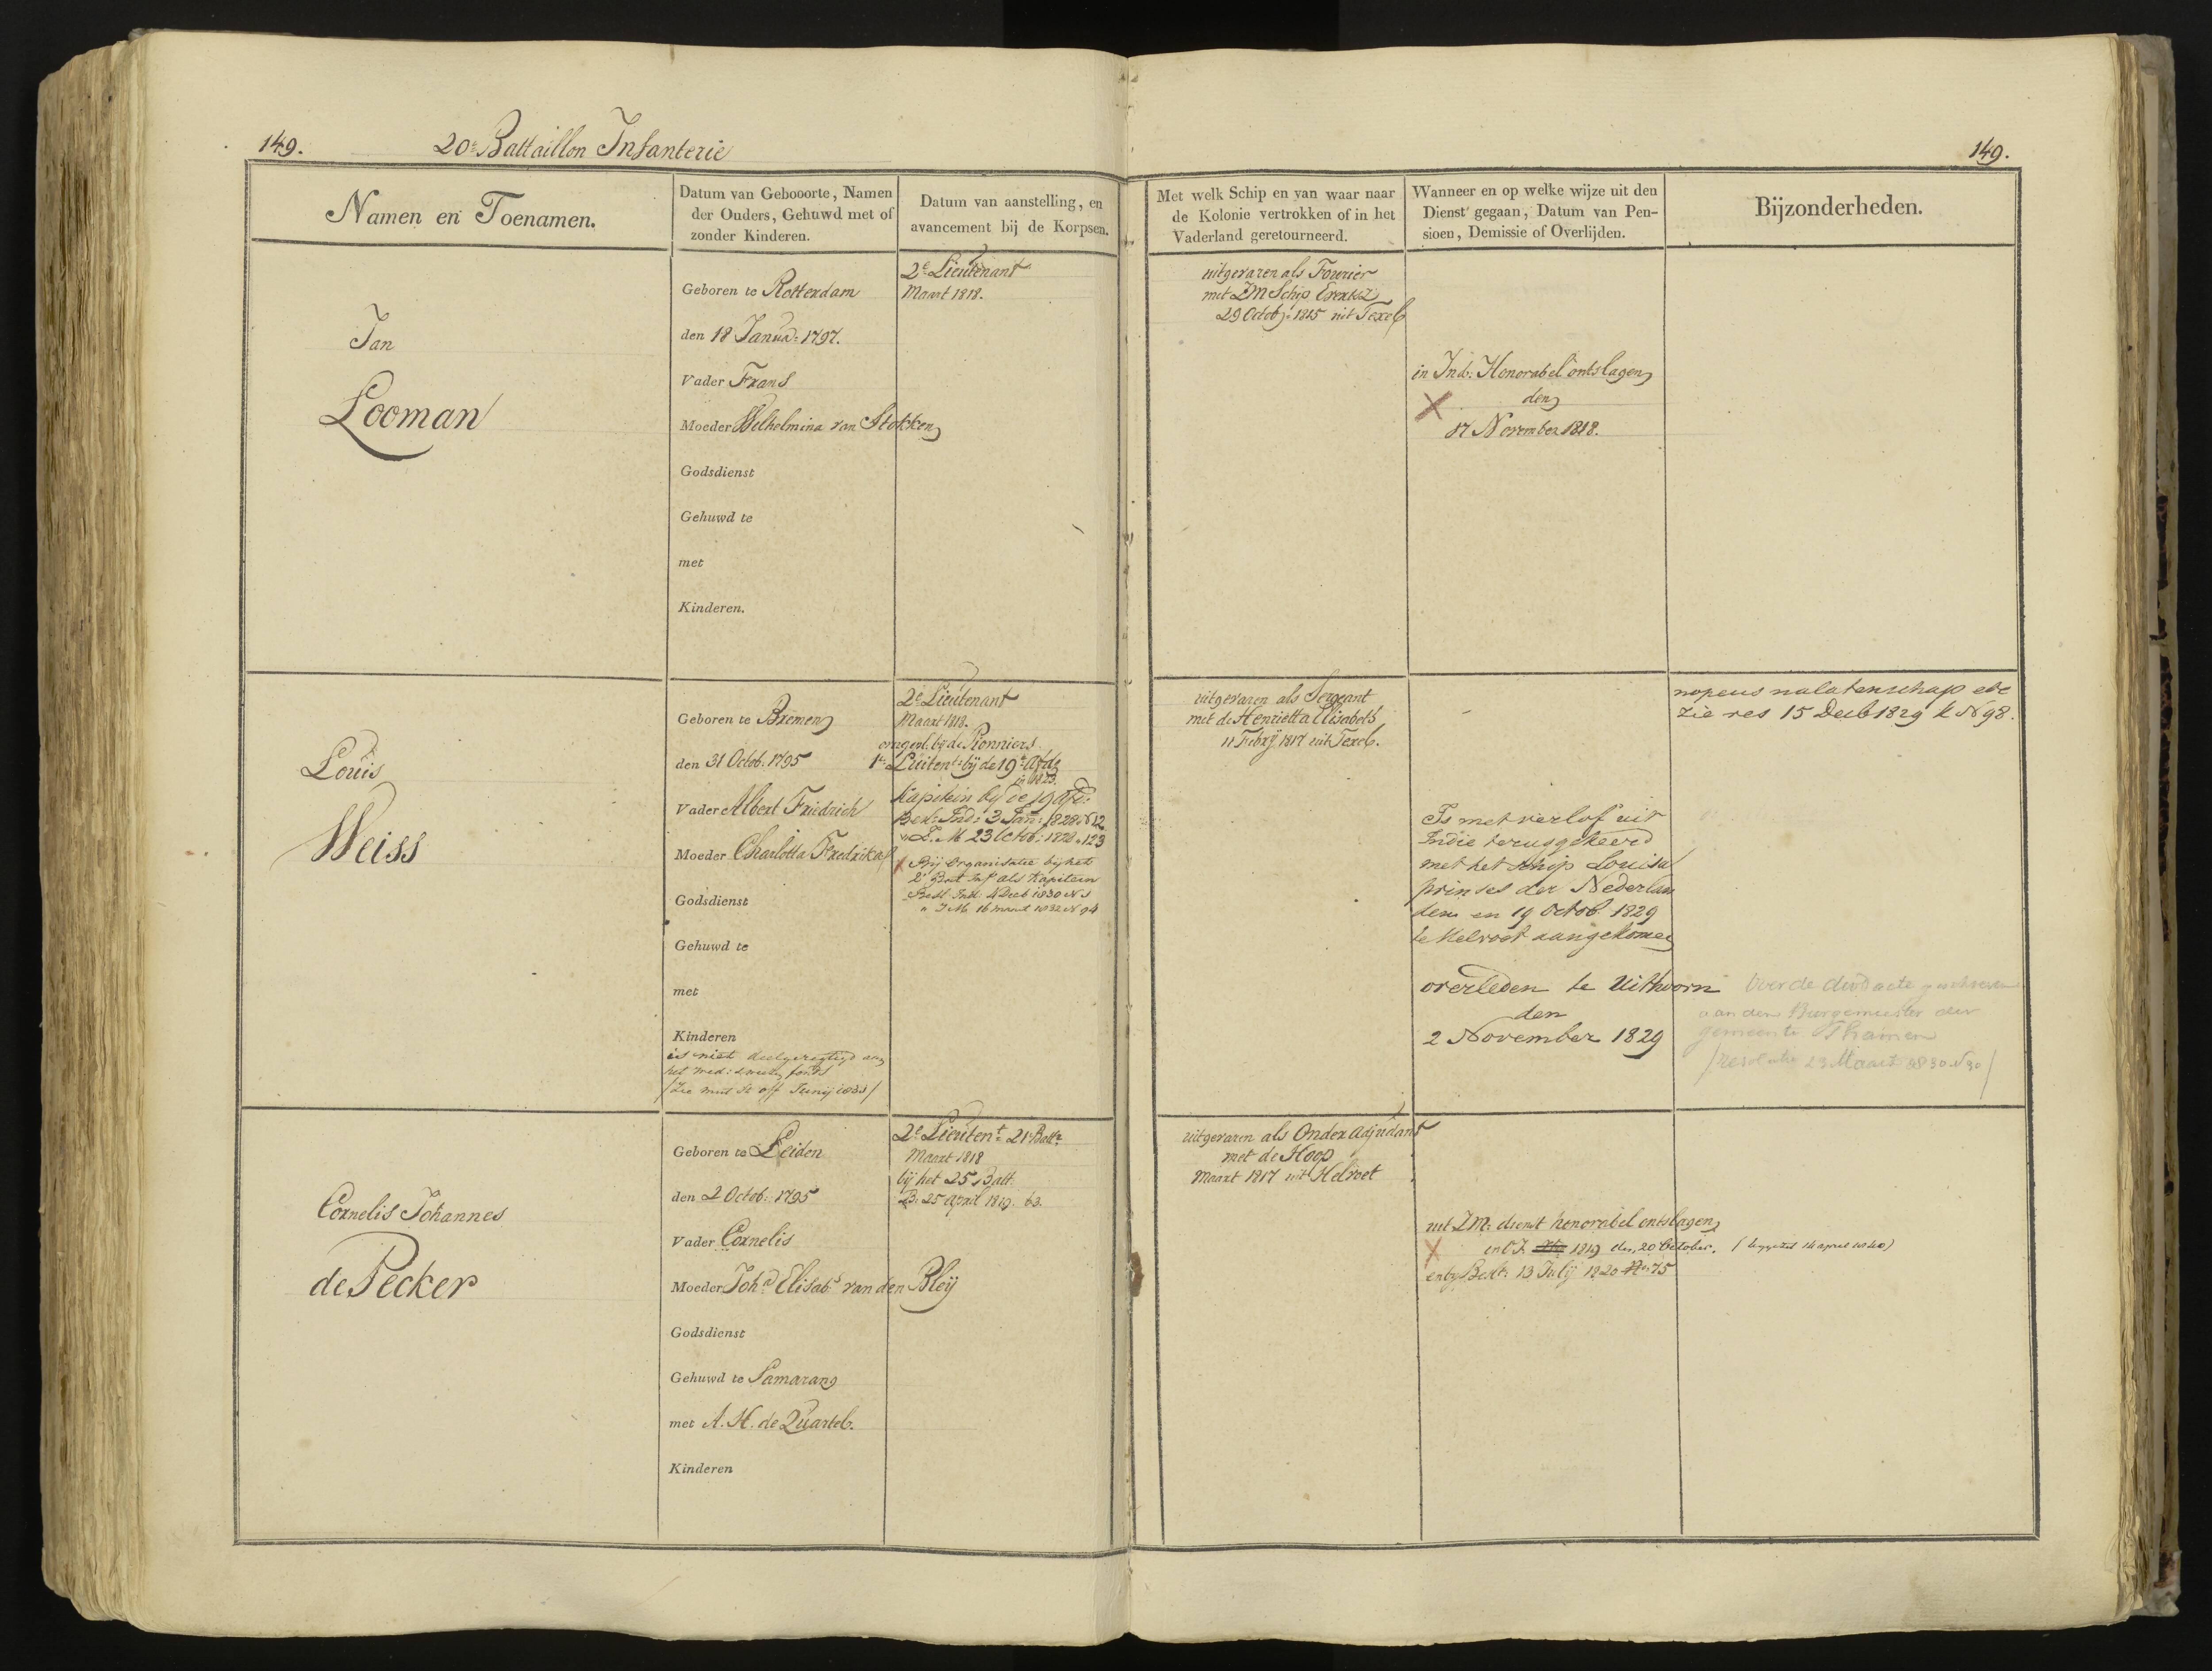 149.
20e Battaillon Infanterie
149.
Namen en Toenamen.
Datum van Gebooorte, Namen
der Ouders, Gehuwd met of
zonder Kinderen.
Datum van aanstelling, en
avancement bij de Korpsen.
Met welk Schip en van waar naar
de Kolonie vertrokken of in het
Vaderland geretourneerd.
Wanneer en op welke wijze uit den
Dienst gegaan, Datum van Pen-
sioen, Demissie of Overlijden.
Bijzonderheden.
Jan
Looman
Geboren te Rotterdam
den 18 Janua: 1797.
Vader Frans
Moeder Wilhelmina van Stokken
Godsdienst
Gehuwd te
met
Kinderen.
2e Lieutenant
Maart 1818.
uitgevaren als Fourier
met ZM Schip Evertsz
29 Octob: 1815 uit Texel
in Ind: Honorabel ontslagen
den
17 November 1818.
Louis
Weiss
Geboren te Bremen
den 31 Octob. 1795
Vader Albert Friedrich
Moeder Charlotta Fredrika
Godsdienst
Gehuwd te
met
Kinderen
is niet deelgeregtigd aan
het Wed: fonds
2e Lieutenant
Maart 1818.
omgepl. bij de Pionniers
1e Luitent: bij de 19e Afde
in 1823.
Kapitein bij de 19 Afd:
Besl: Ind: 3 Jan: 1828 N12
Z. M 23 Octob: 1828 123
Bij Organisatie bij het
2e Bat Inf als Kapitein
Besl. Ind. 4 Decb 1830 N 1
" Z M 16 maart 1832 N 94
uitgevaren als Sergeant
met de Henrietta Elisabeth
11 Febrij 1817 uit Texel.
Is met verlof uit
Indie teruggekeerd
met het schip Louisa
prinses der Nederlan
den en 19 Octob. 1829
te Helvoet aangekomen
overleden te Uithoorn
den
2 November 1829
nopens nalatenschap etc
zie res 15 Decb 1829 N 98.
Voor de dood acte geschreven
aan den Burgemeester der
gemeente Thamen
/resolutie 23 Maart 1830 N30/
Cornelis Johannes
de Pecker
Geboren te Leiden
den 2 Octob: 1795
Vader Cornelis
Moeder Joha Elisabt van den Bleij
Godsdienst
Gehuwd te Samarang
met A. H. de Quartel.
Kinderen
2e Lieutent 21e Batt
Maart 1818
bij het 25e Batt.
B: 25 April 1819. 63.
uitgevaren als Onder Adjudant
met de Hoop
Maart 1817 uit Helvoet
uit ZM: dienst honorabel ontslagen
in O I 1819 den 20 October.
Beslt: 13 Julij 1820 No 75